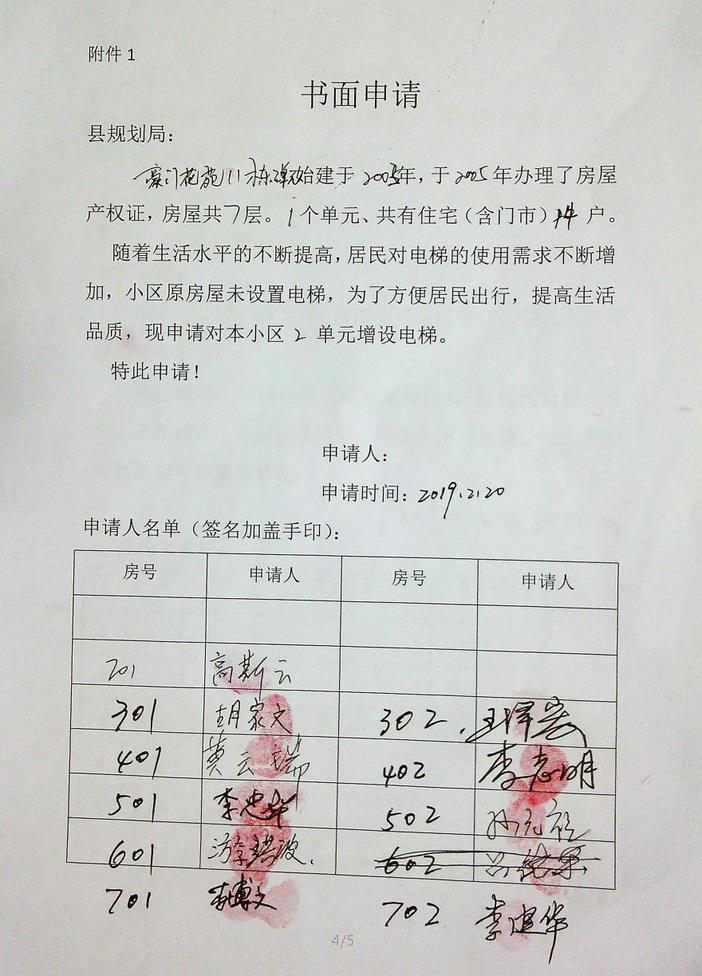 附件1
书面申请
县规划局：
豪门花苑11栋 始建于2005年，于2005年办理了房屋
产权证，房屋共7层。1个单元、共有住宅（含门市）14户。
随着生活水平的不断提高，居民对电梯的使用需求不断增
加，小区原房屋未设置电梯，为了方便居民出行，提高生活
品质，现申请对本小区2单元增设电梯。
特此申请！
申请人：
申请时间：2019.2.20
申请人名单（签名加盖手印）：
房号 申请人 房号 申请人
201 高斯云
301 胡家文 302
401 莫云瑞 402 李志明
501 李忠华 502
601 602
701 李博文 702 李建华
4/5